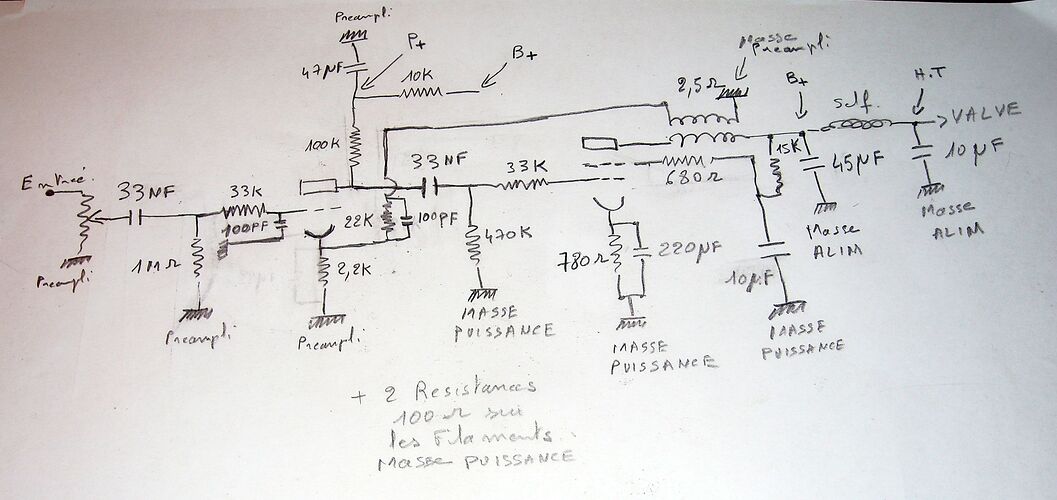 Preampli
P+
B+
47µF
10K
Masse
Preampli
2,5Ω
B+
H.T
self.
VALVE
100K
15K
45µF
10µF
Entrée
33NF
33K
33NF
33K
680Ω
100PF
22K
100PF
Masse
ALIM
Masse
ALIM
1MΩ
2,2K
470K
780Ω
220µF
10µF
Preampli
Preampli
Preampli
MASSE
PUISSANCE
MASSE
PUISSANCE
MASSE
PUISSANCE
+ 2 Resistances
100Ω sur
les Filaments.
Masse PUISSANCE